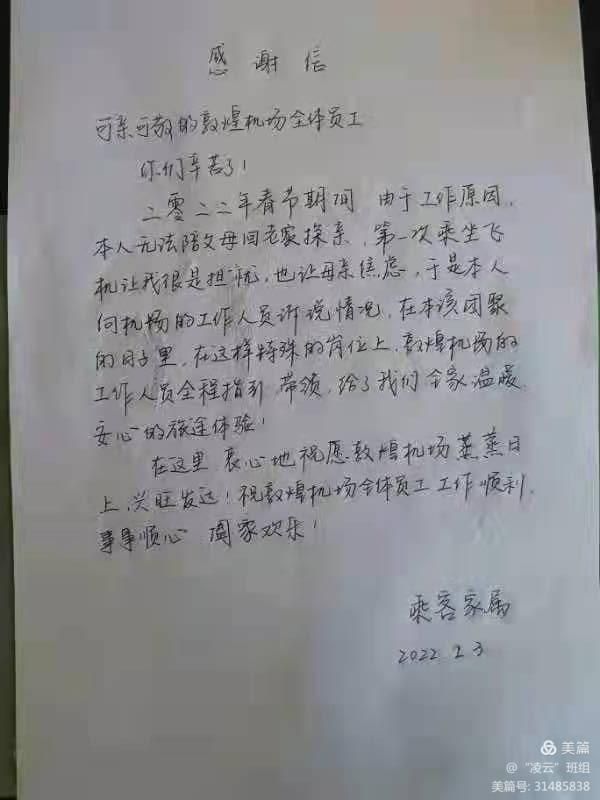 感谢信
可亲可敬的敦煌机场全体员工
你们辛苦了！
二零二二年春节期间 由于工作原因，
本人无法陪父母回老家探亲，第一次乘坐飞
机让我很是担忧，也让母亲焦虑，于是本人
向机场的工作人员诉说情况，在本该团聚
的日子里，在这样特殊的岗位上，敦煌机场的
工作人员全程指引，带领，给了我们全家温暖，
安心的旅途体验！
在这里，衷心地祝愿敦煌机场蒸蒸日
上，兴旺发达！祝敦煌机场全体员工工作顺利，
事事顺心 阖家欢乐！
乘客家属
2022.2.3
美篇
@“凌云”班组
美篇号：31485838